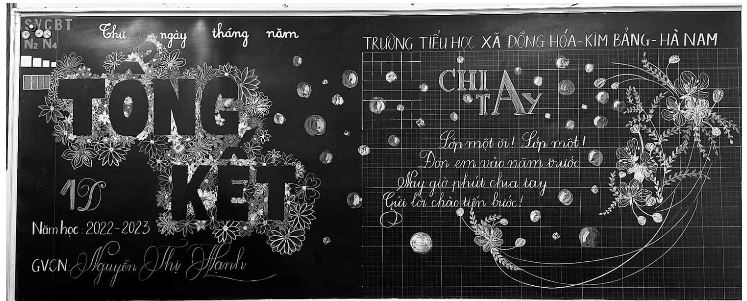 SVCBT
N2 N4
Thứ ngày tháng năm
TỔNG
KẾT
1D
Năm học: 2022-2023
GVCN: Nguyễn Thị Hanh
TRƯỜNG TIỂU HỌC XÃ ĐỒNG HÓA-KIM BẢNG-HÀ NAM
CHIA
TAY
Lớp một ơi! Lớp một!
Đón em vào năm trước
Nay giờ phút chia tay
Gửi lời chào tiến bước!